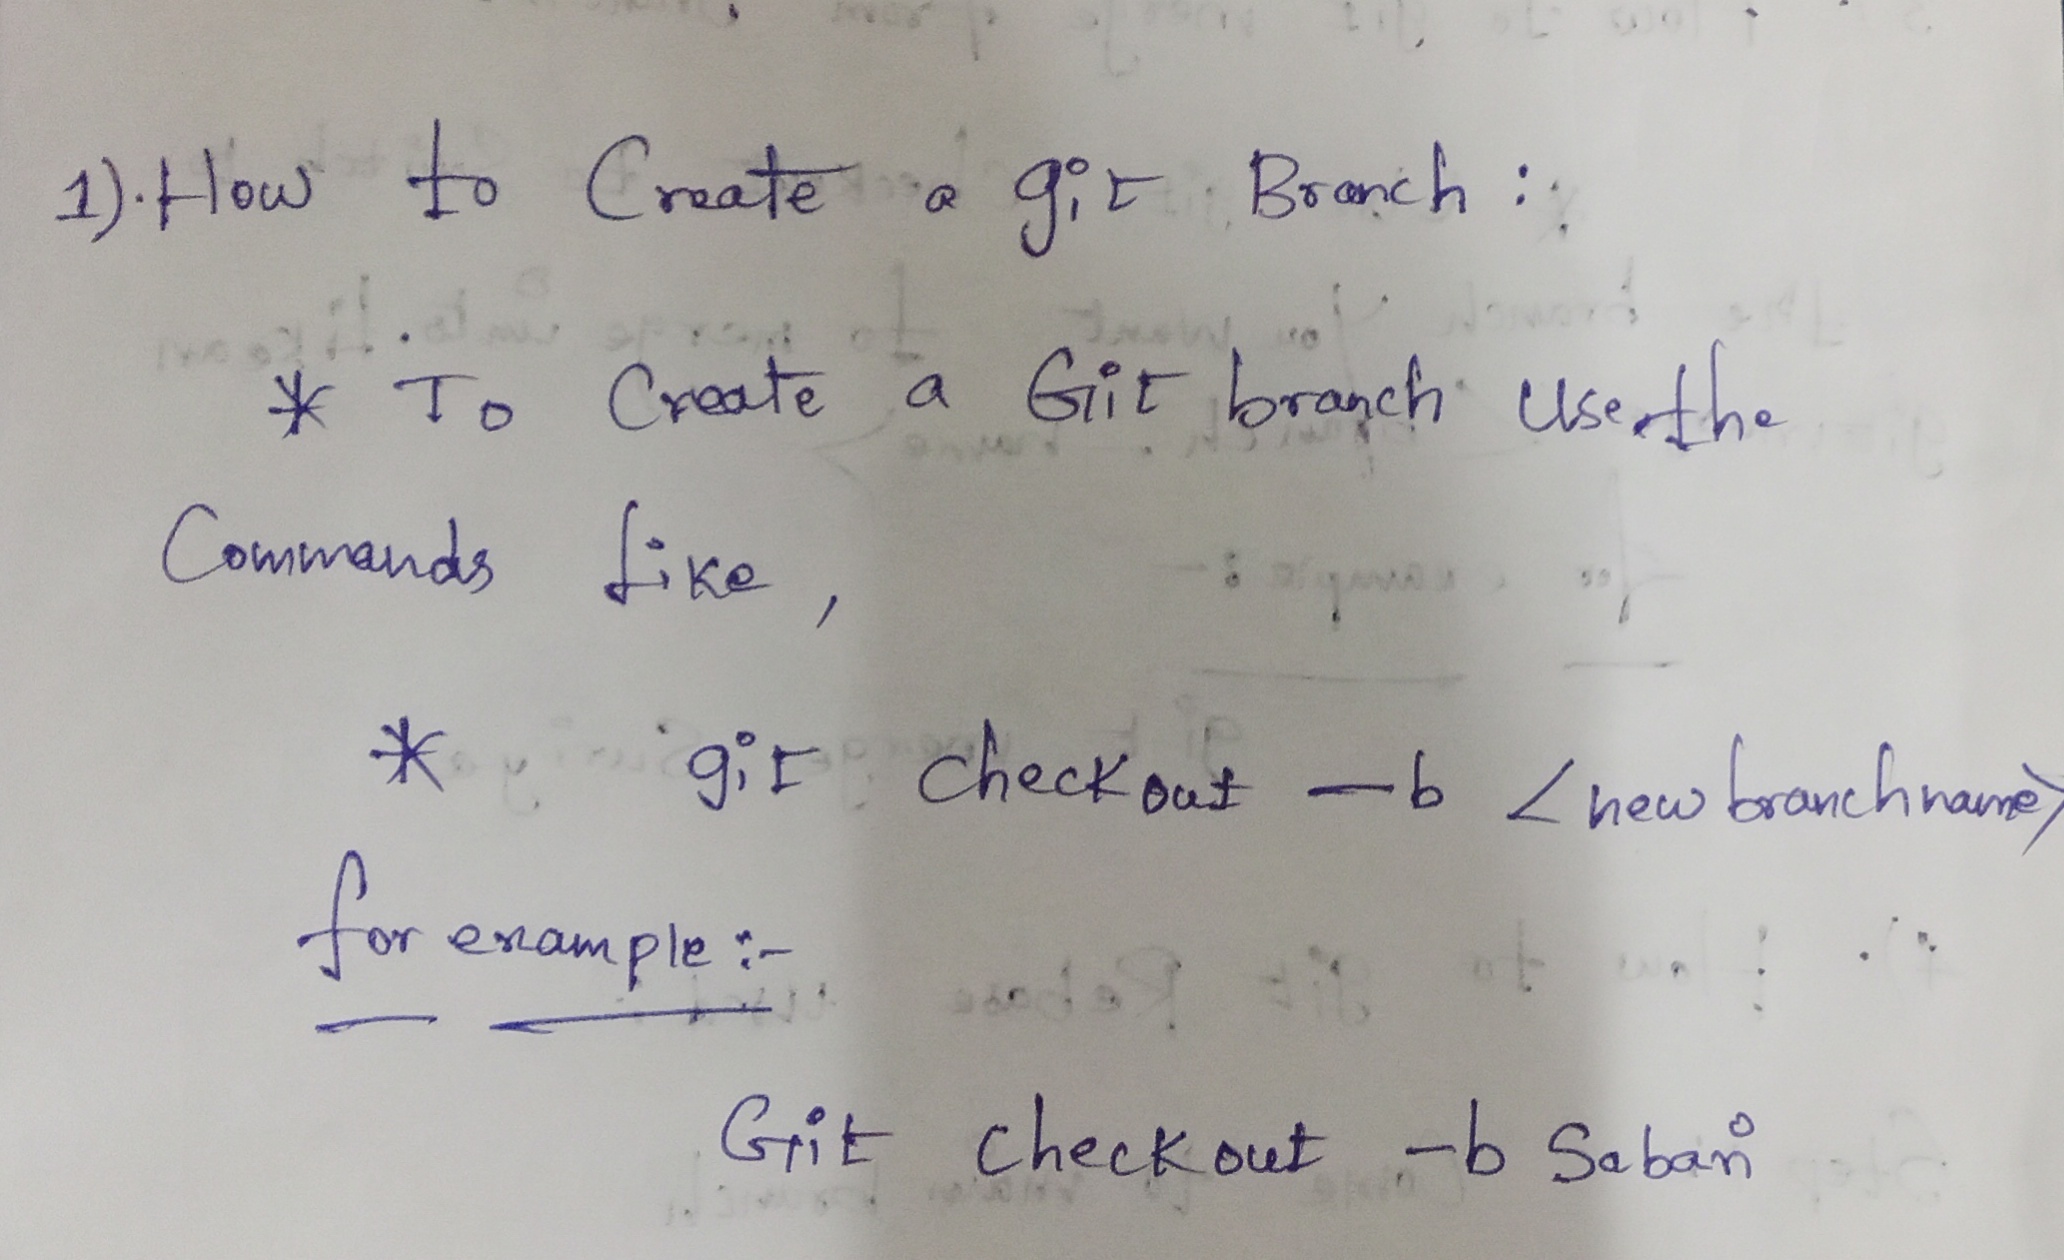 1). How to Create a git Branch :
* To Create a Git branch Use the
Commands Like ,
* git checkout -b <new branch name>
for example :-
Git checkout -b Sabari